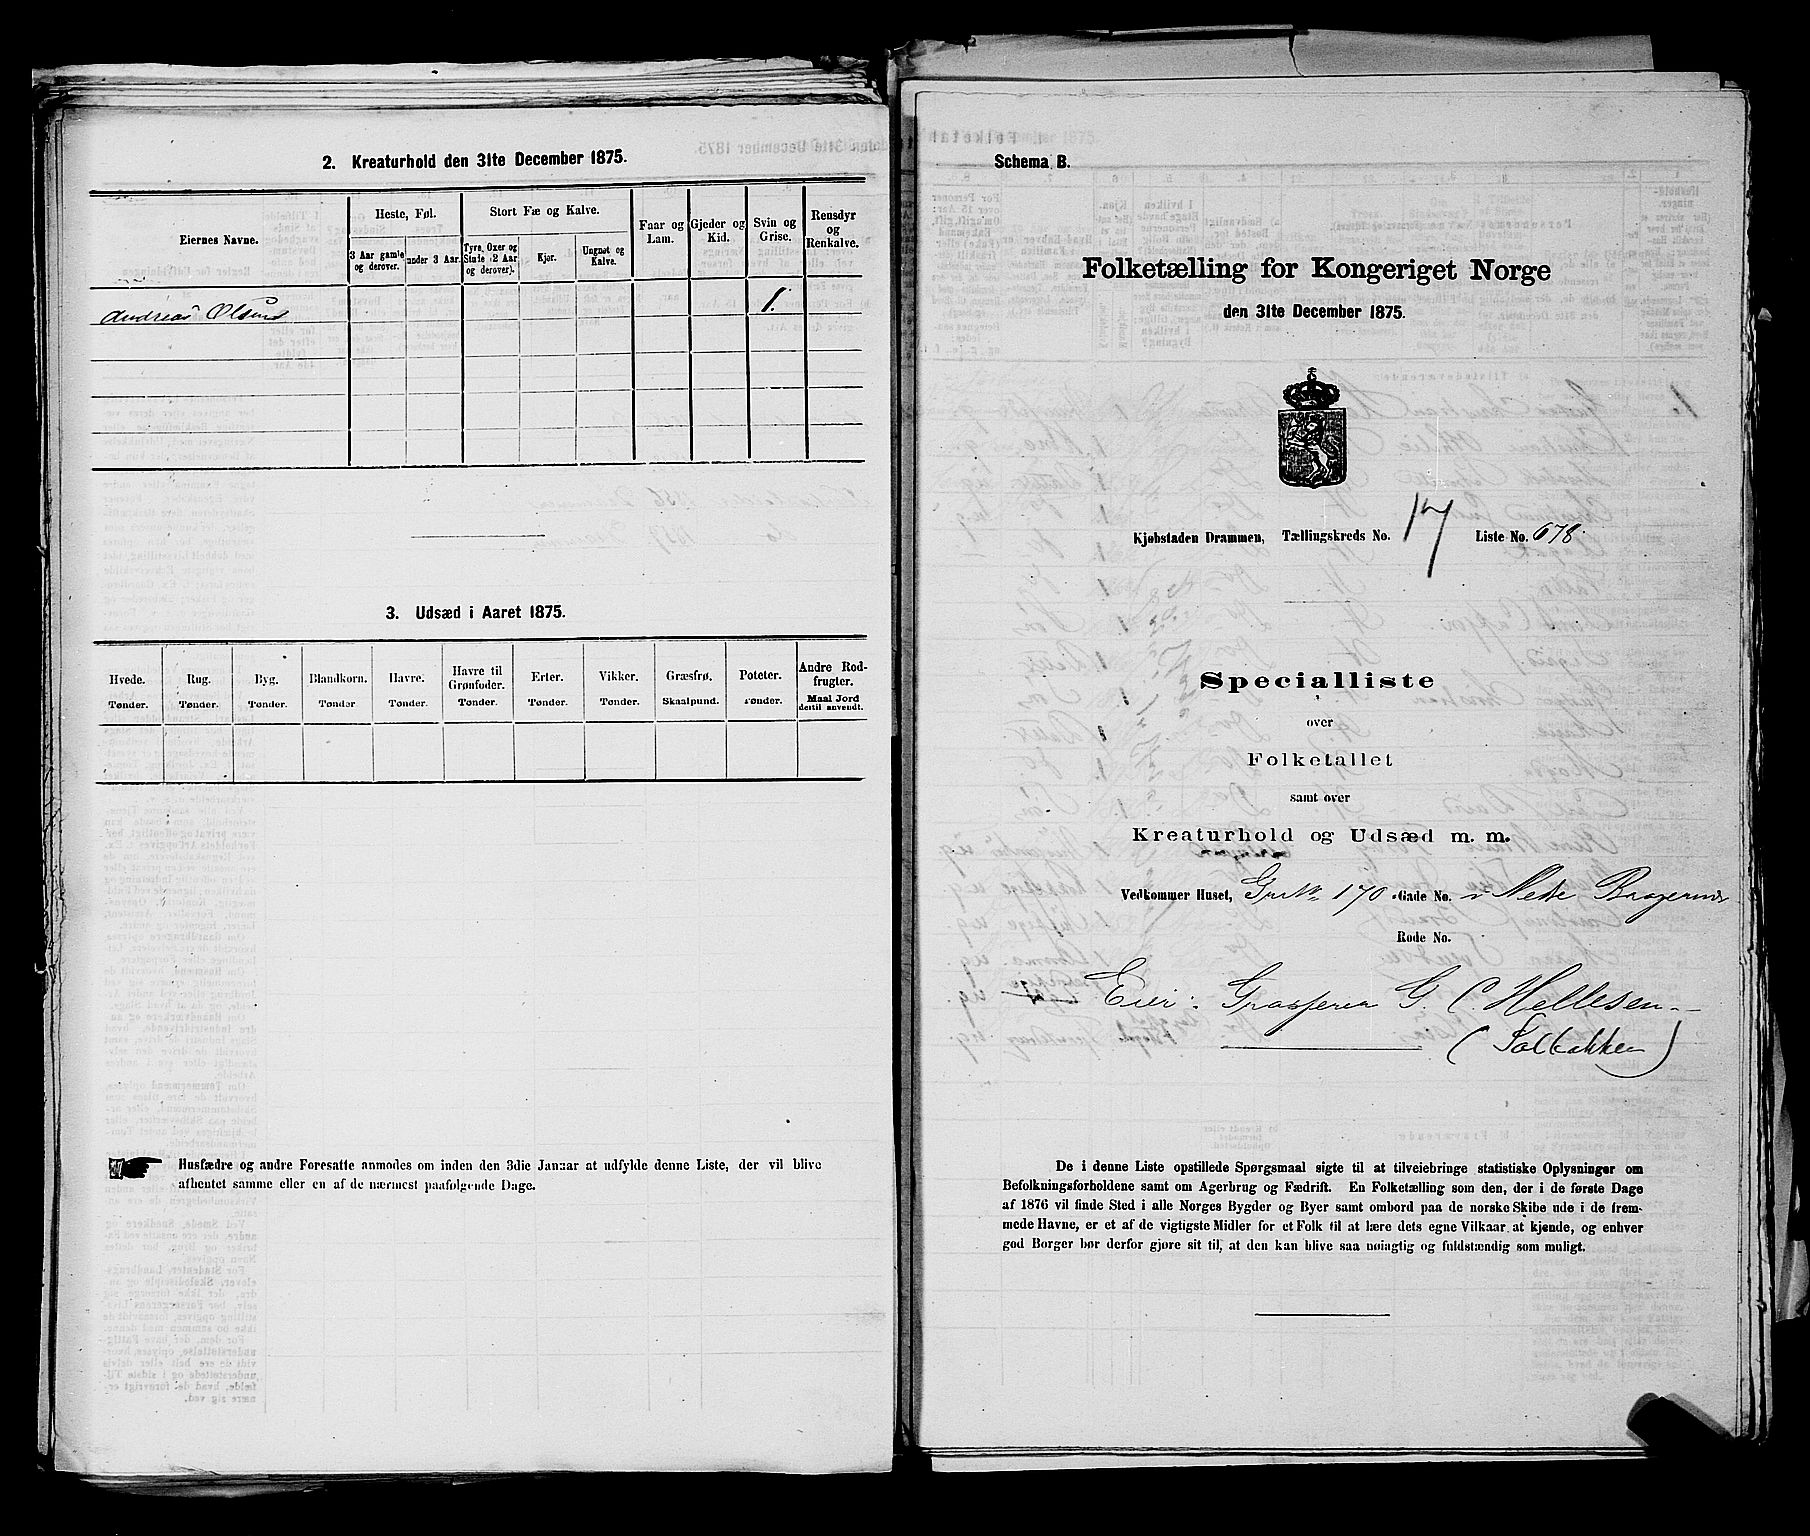 2. Kreaturhold den 31te December 1875.
Eiernes Navne.
Heste, Føl.
Stort Fæ og Kalve.
Faar og Lam.
Gjeder og Kid.
Svin og Grise.
Rensdyr og Renkalve.
3 Aar gamle og derover.
under 3 Aar.
Tyre, Oxer og Stude (2 Aar og derover).
Kjør.
Ungnøt og Kalve.
Andreas Olsens 1.
3. Udsæd i Aaret 1875.
Hvede. Rug. Byg. Blandkorn. Havre. Havre til Grønfoder. Erter. Vikker. Græsfrø. Poteter. Andre Rodfrugter.
Tønder. Tønder. Tønder. Tønder Tønder. Tønder. Tønder. Tønder. Skaalpund. Tønder. Maal Jord dertil anvendt.
Husfædre og andre Foresatte anmodes om inden den 3die Januar at udfylde denne Liste, der vil blive
afhentet samme eller en af de nærmest paafølgende Dage.
Schema B.
Folketælling for Kongeriget Norge
den 31te December 1875.
Kjøbstaden Drammen, Tællingskreds No. 17 Liste No. 678.
Specialliste
over
Folketallet
samt over
Kreaturhold og Udsæd m. m.
Vedkommer Huset, 170 Gade No. Nedre Bragernes
Rode No.
Eier: G. C. Hellesen
(Solbakken)
De i denne Liste opstillede Spørgsmaal sigte til at tilveiebringe statistiske Oplysninger om
Befolkningsforholdene samt om Agerbrug og Fædrift. En Folketælling som den, der i de første Dage
af 1876 vil finde Sted i alle Norges Bygder og Byer samt ombord paa de norske Skibe ude i de frem-
mede Havne, er et af de vigtigste Midler for et Folk til at lære dets egne Vilkaar at kjende, og enhver
god Borger bør derfor gjøre sit til, at den kan blive saa nøiagtig og fuldstændig som muligt.